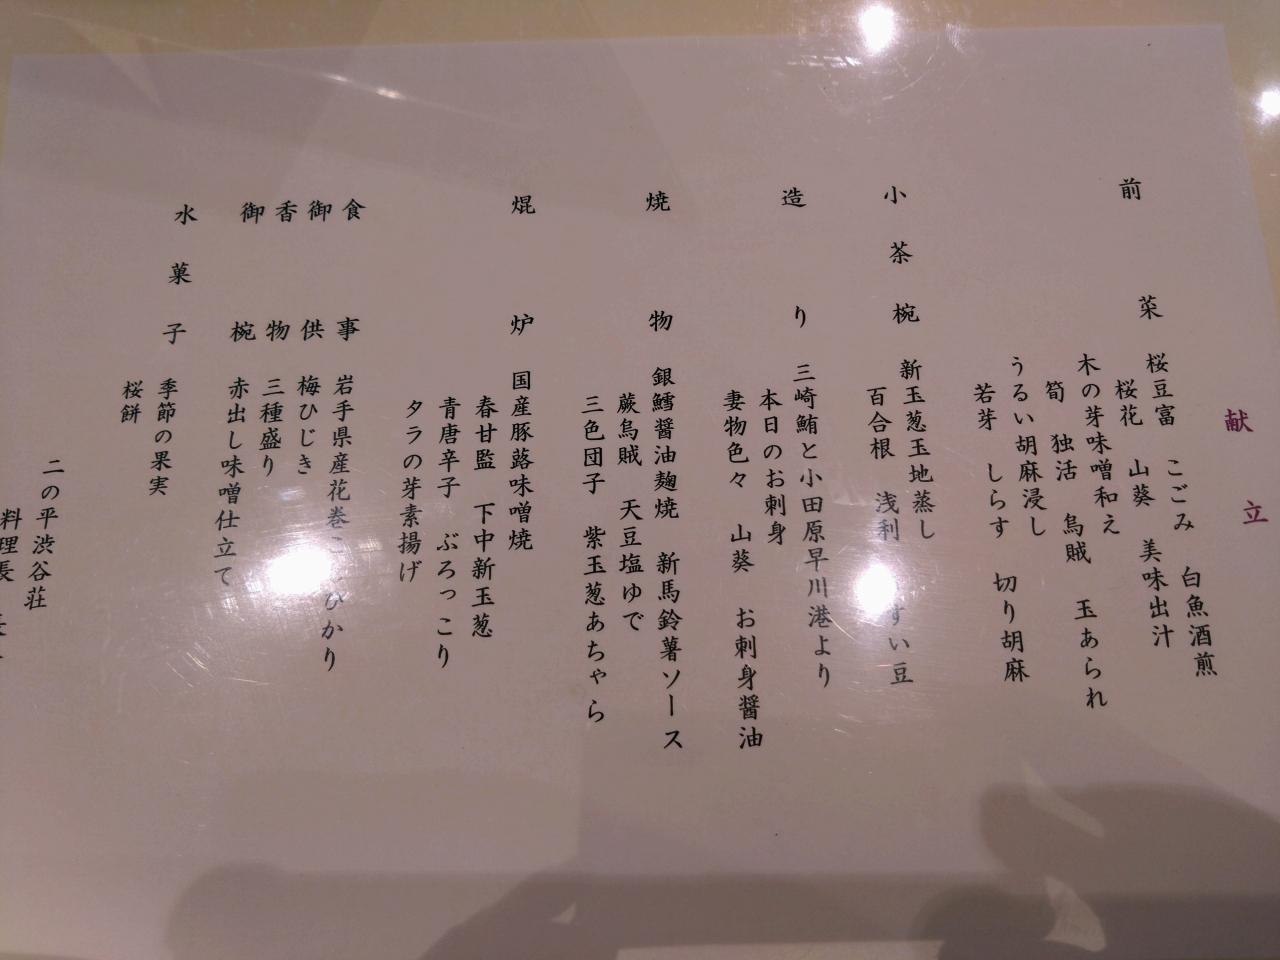 献立
前菜 桜豆富 こごみ 白魚酒煎
桜花 山葵 美味出汁
木の芽味噌和え
筍 独活 烏賊 玉あられ
うるい胡麻浸し
若芽 しらす 切り胡麻
小茶椀 新玉葱玉地蒸し
百合根 浅利 すい豆
造り 三崎鮪と小田原早川港より
本日のお刺身
妻物色々 山葵 お刺身醤油
焼物 銀鱈醤油麹焼 新馬鈴薯ソース
蕨烏賊 天豆塩ゆで
三色団子 紫玉葱あちゃら
焜炉 国産豚蕗味噌焼
春甘監 下中新玉葱
青唐辛子 ぶろっこり
タラの芽素揚げ
食事 岩手県産花巻こ ひかり
御供 梅ひじき
香物 三種盛り
御椀 赤出し味噌仕立て
水菓子 季節の果実
桜餅
二の平渋谷荘
料理長